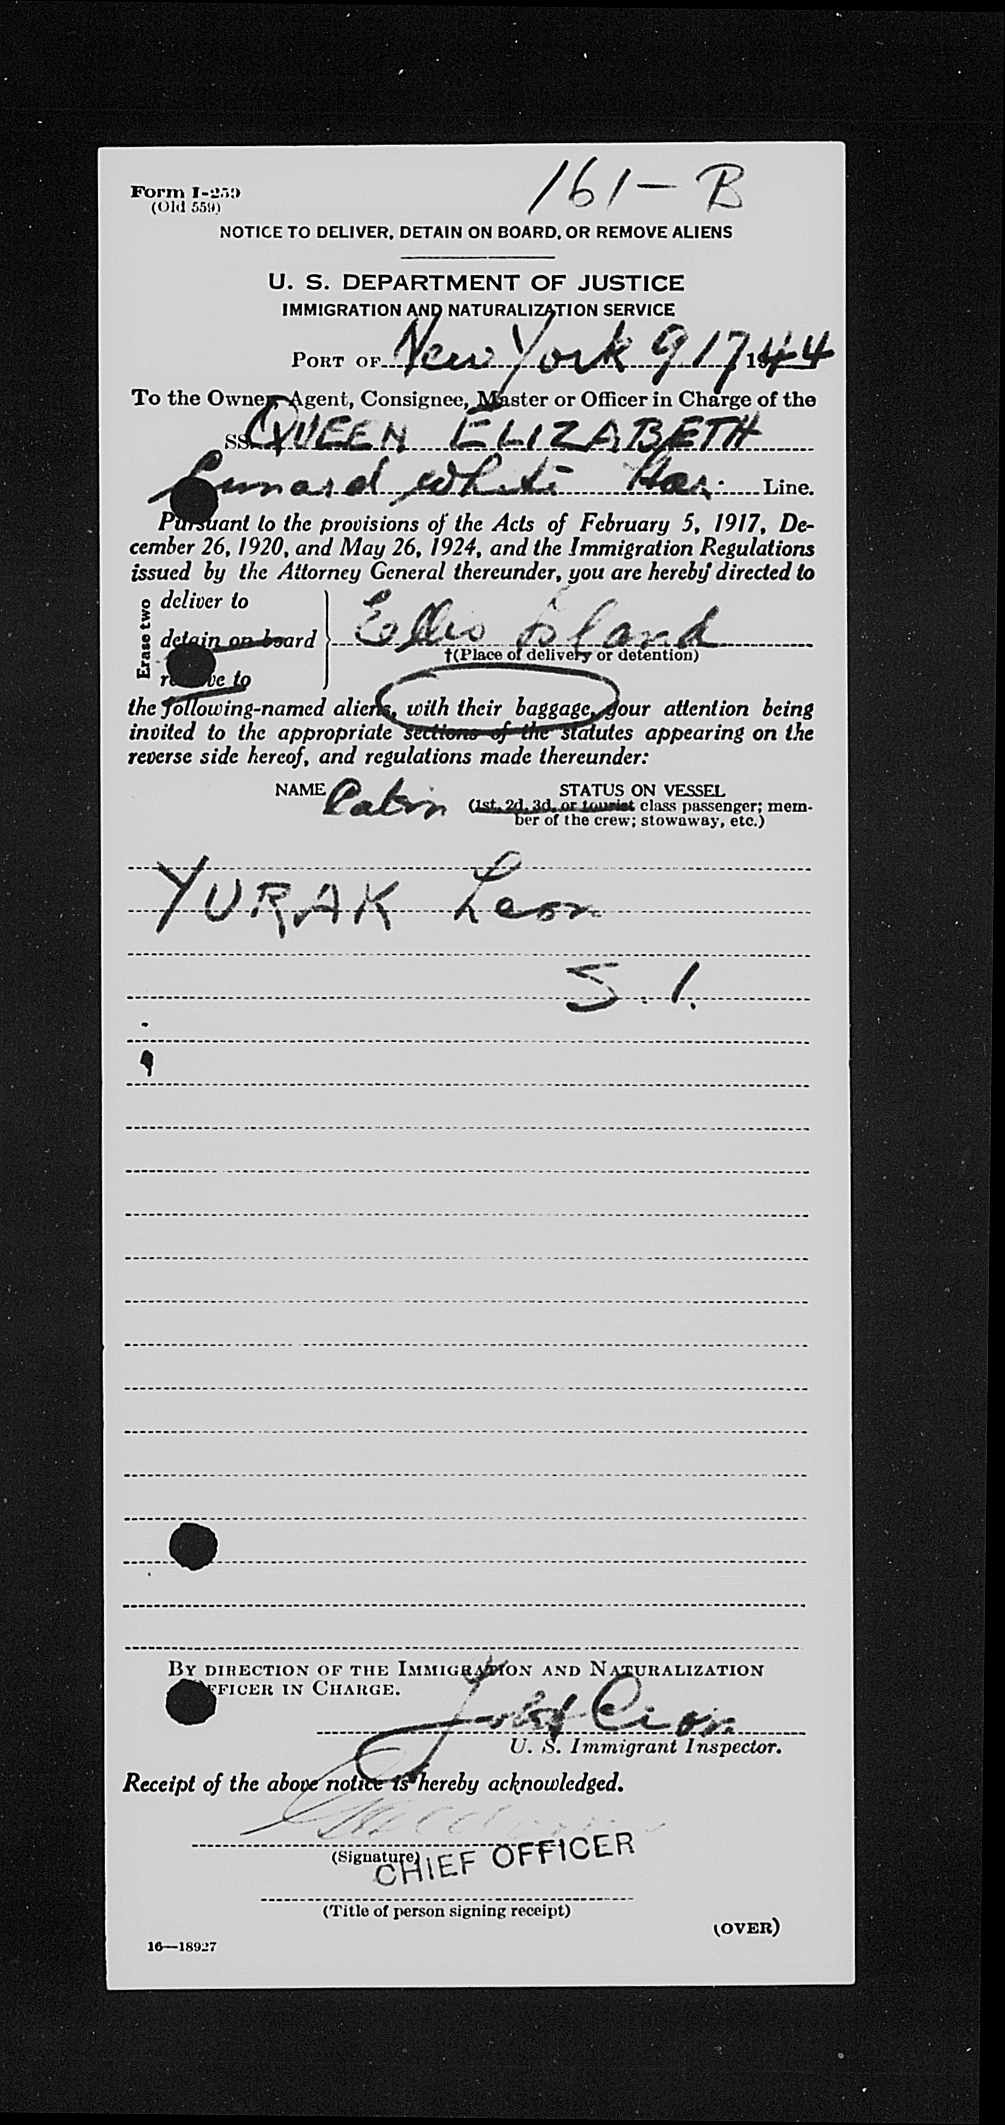 161-B
Form I-259
(Old 559)
NOTICE TO DELIVER, DETAIN ON BOARD, OR REMOVE ALIENS
U. S. DEPARTMENT OF JUSTICE
IMMIGRATION AND NATURALIZATION SERVICE
PORT OF New York 9 17 1944
To the Owner, Agent, Consignee, Master or Officer in Charge of the
SS. QUEEN ELIZABETH
Cunard White Star Line.
Pursuant to the provisions of the Acts of February 5, 1917, De-
cember 26, 1920, and May 26, 1924, and the Immigration Regulations
issued by the Attorney General thereunder, you are hereby directed to
Erase two
deliver to
detain on board
remove to
Ellis Island
†(Place of delivery or detention)
the following-named aliens, with their baggage, your attention being
invited to the appropriate sections of the statutes appearing on the
reverse side hereof, and regulations made thereunder:
NAME Cabin STATUS ON VESSEL
(1st, 2d, 3d, or tourist class passenger; mem-
ber of the crew; stowaway, etc.)
YURAK Leon
S.I.
BY DIRECTION OF THE IMMIGRATION AND NATURALIZATION
OFFICER IN CHARGE.
U. S. Immigrant Inspector.
Receipt of the above notice is hereby acknowledged.
(Signature)
CHIEF OFFICER
(Title of person signing receipt)
(OVER)
16—18927